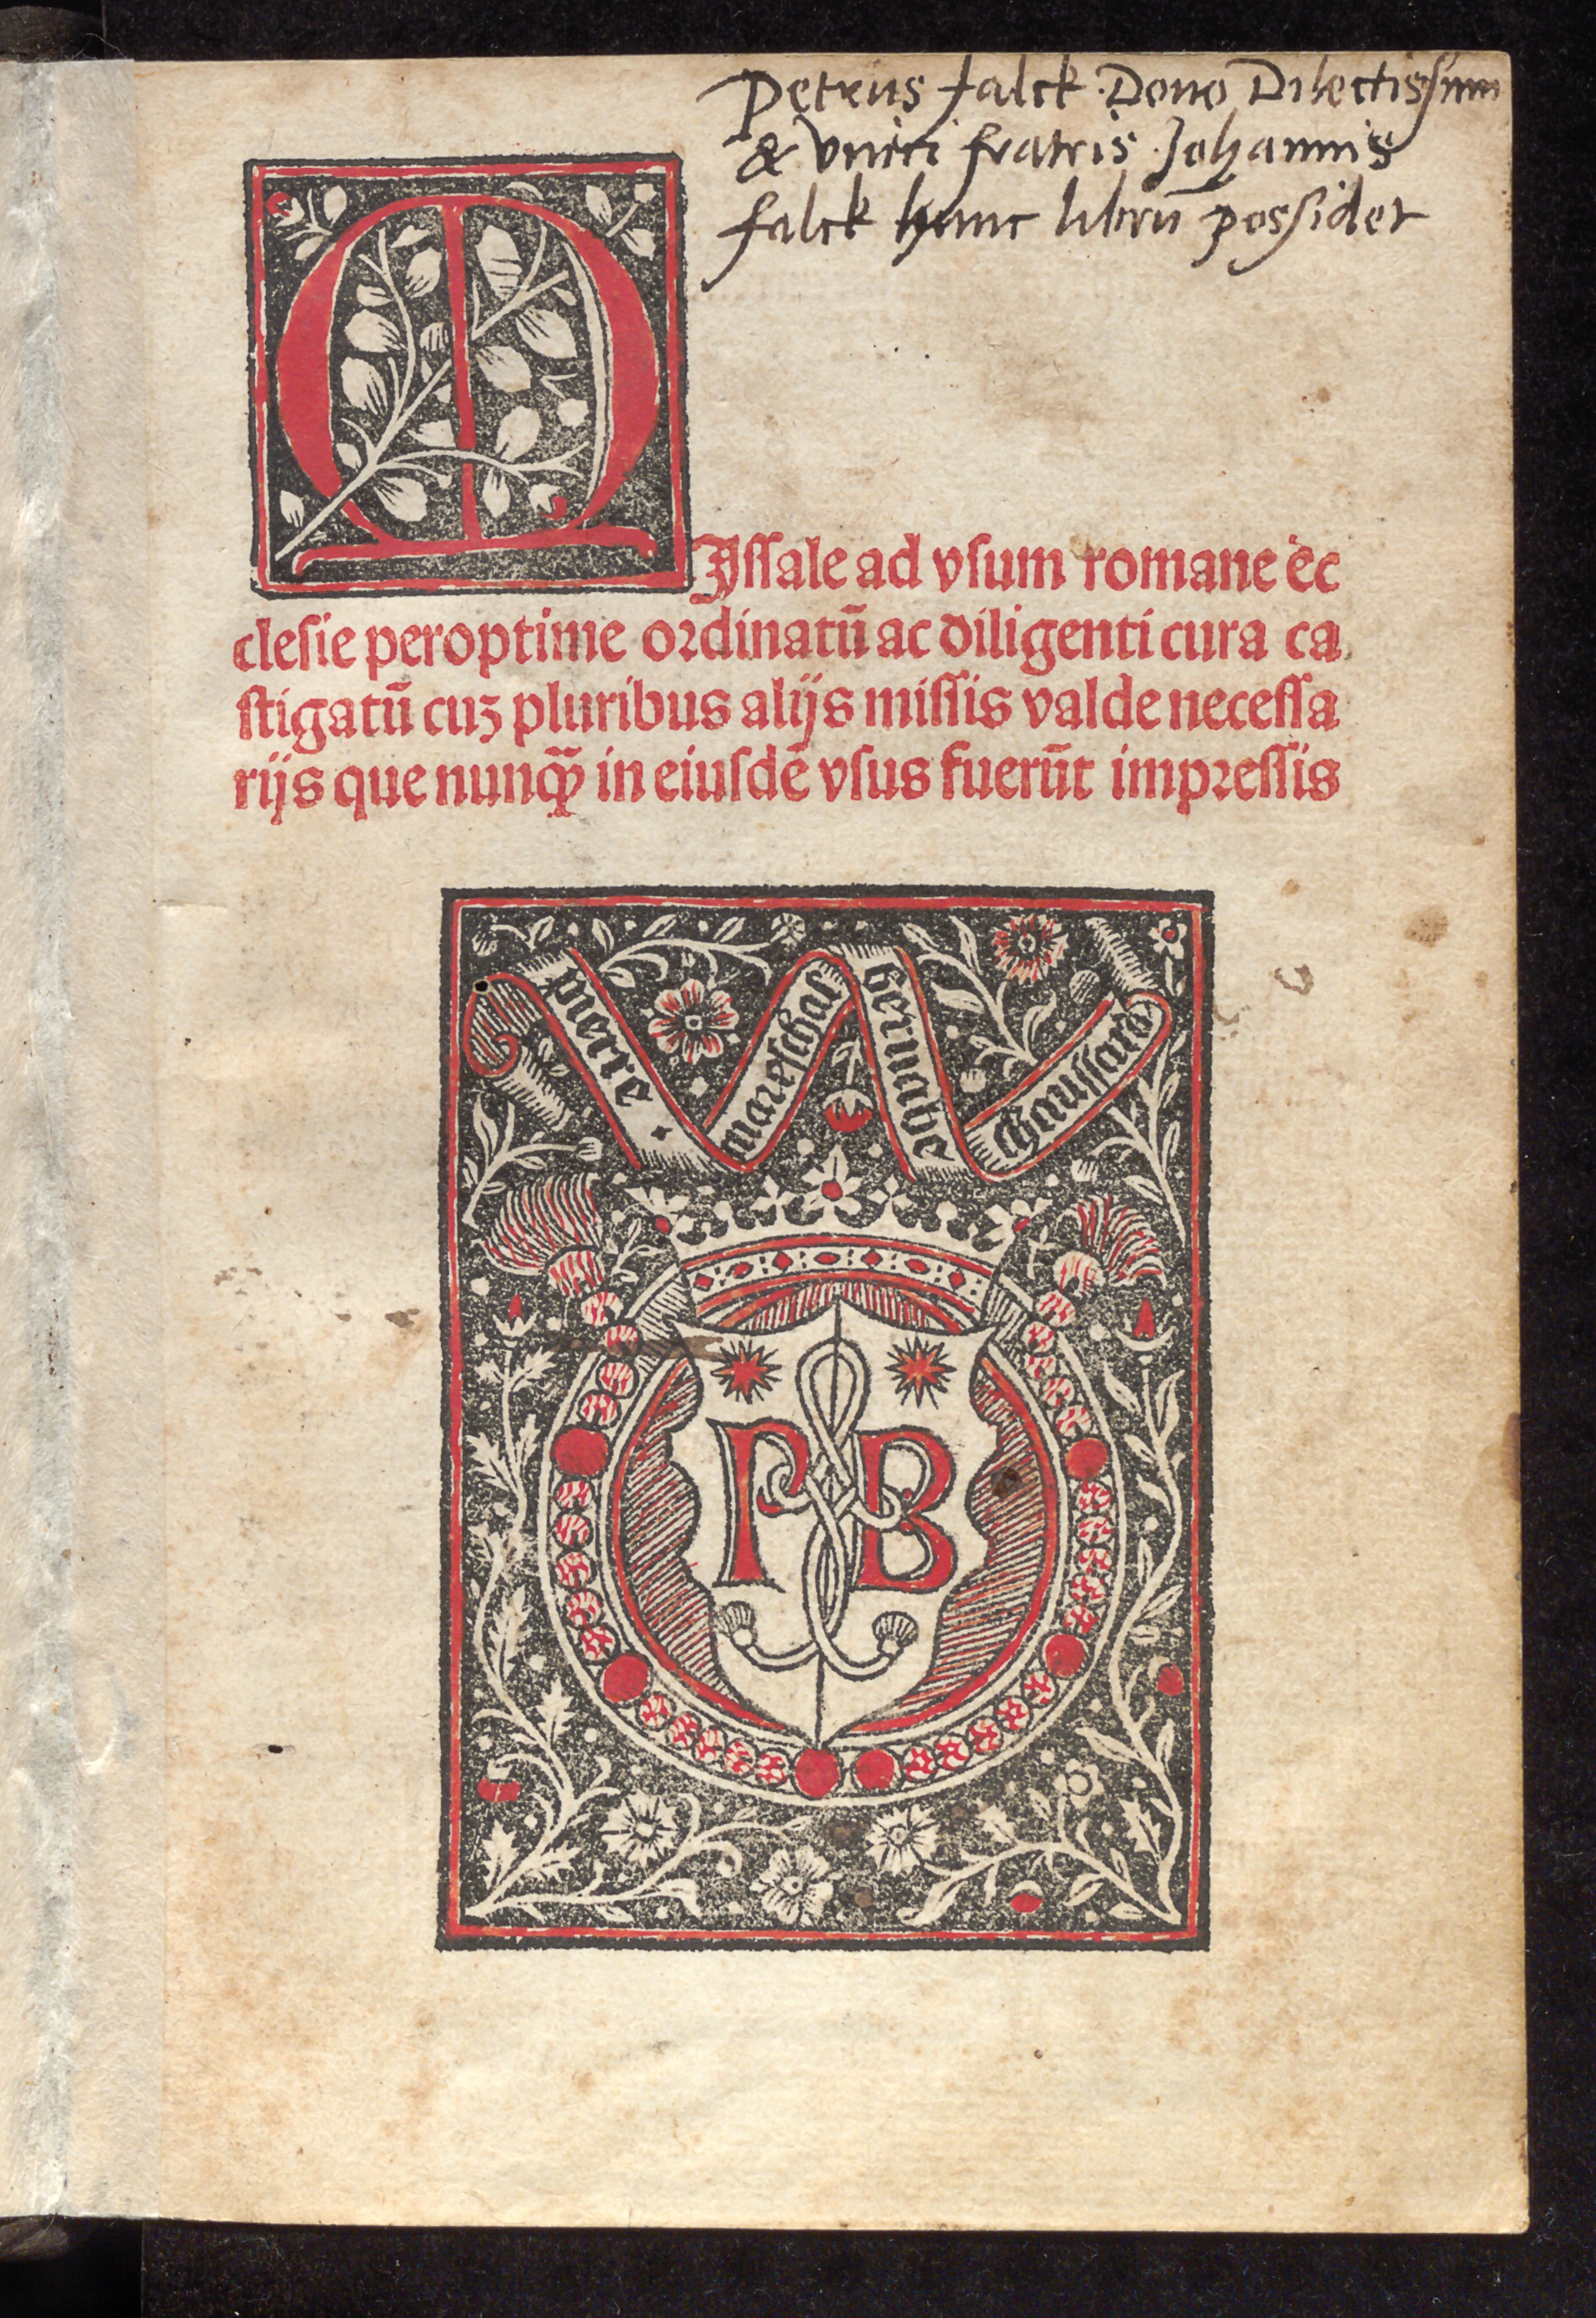 Petrus falck Dono Dilectissimi
& Vnici fratris Johannis
falck hunc librū possidet
MIssale ad vsum romane ec
clesie peroptime ordinatū ac diligenti cura ca
stigatū cuꝫ pluribus alijs missis valde necessa
rijs que nunꝙ̄ in eiusdē vsus fuerūt impressis
pierre mareschal bernabe chaussard
P B